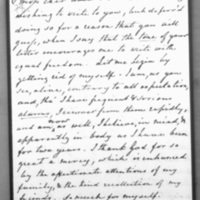 wishing to write to you, but deferred
doing so for a reason that you will
guess, when I say that the tone of your
letter encourages me to write with
equal freedom. Let me begin by
getting rid of myself. I am, as you
see, alive, contrary to all expectation,
and, tho' I have frequent & severe
alarms, I recover from them rapidly,
and am now as well, I believe, in mind, &
apparently in body as I have been
for two years. I thank God for so
great a mercy, which is enhanced
by the affectionate attentions of my
family, & the kind recollection of my
friends. So much for myself.